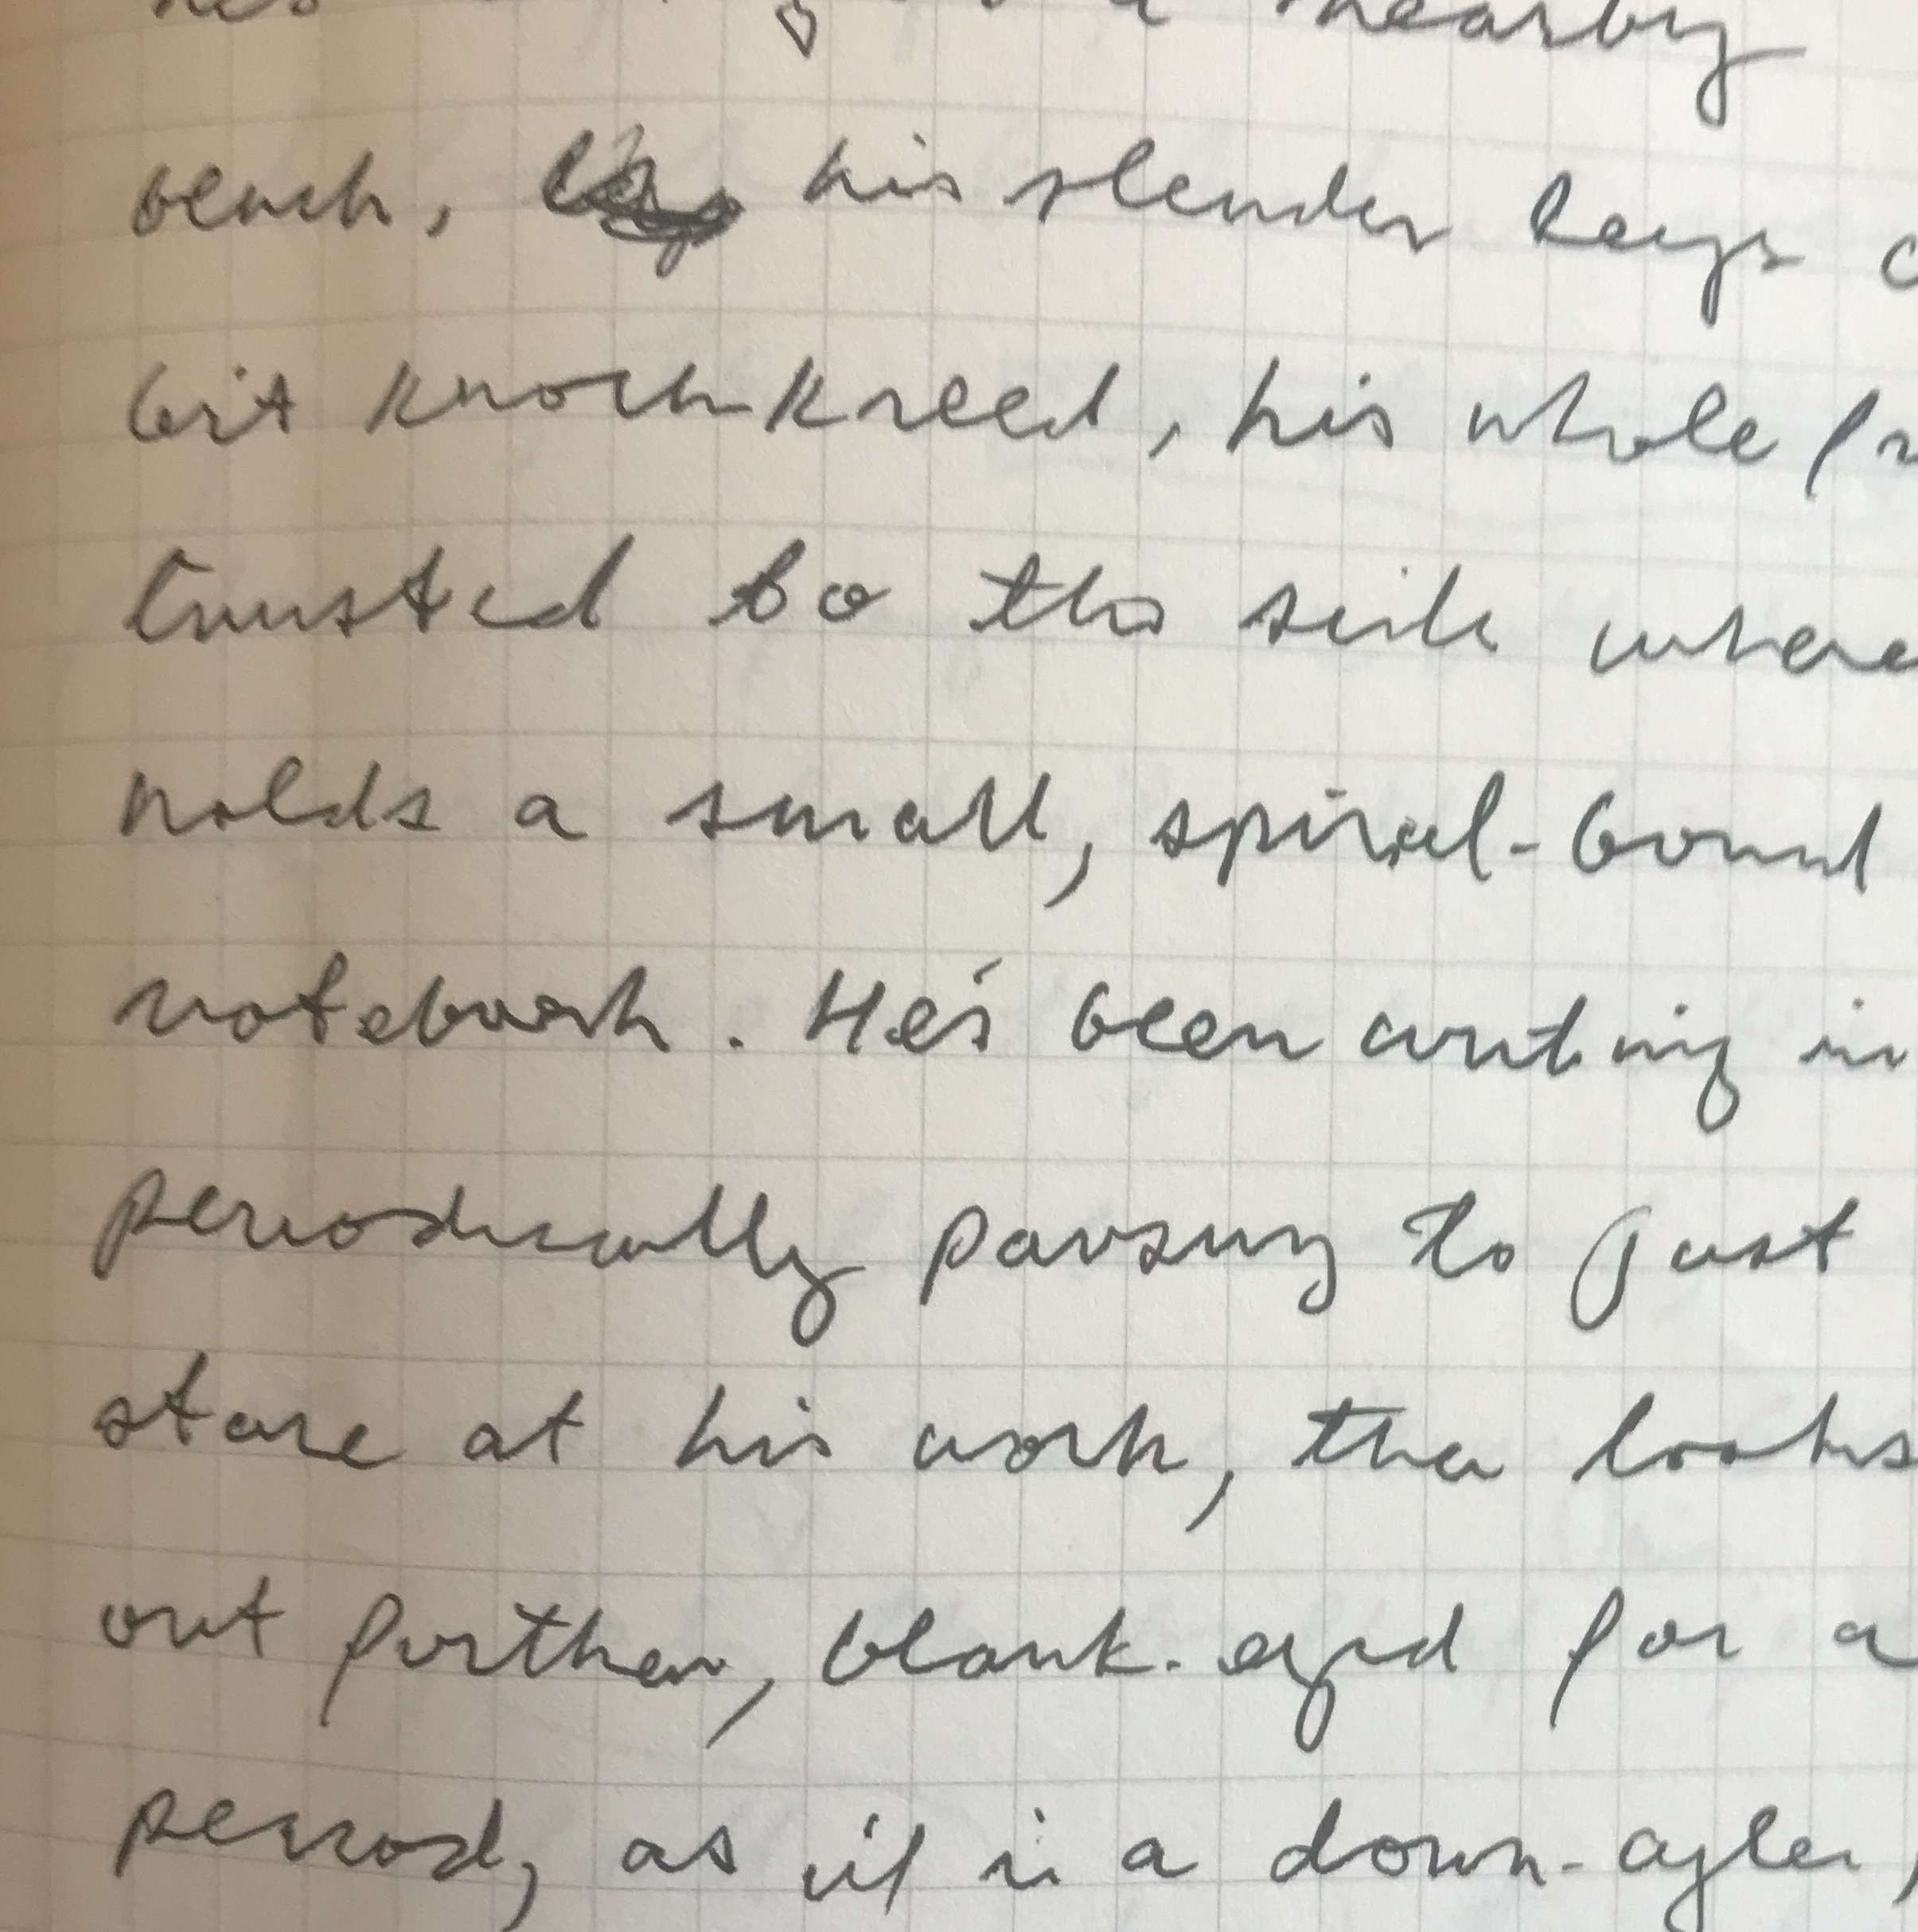 nearby
bench, his slender legs
bit knock-kneed, his whole
twisted to the side where
holds a small, spiral-bound
notebook. He's been writing in
periodically pausing to just
stare at his work, then looks
out further, blank-eyed for a
period, as if in a down-cycle,